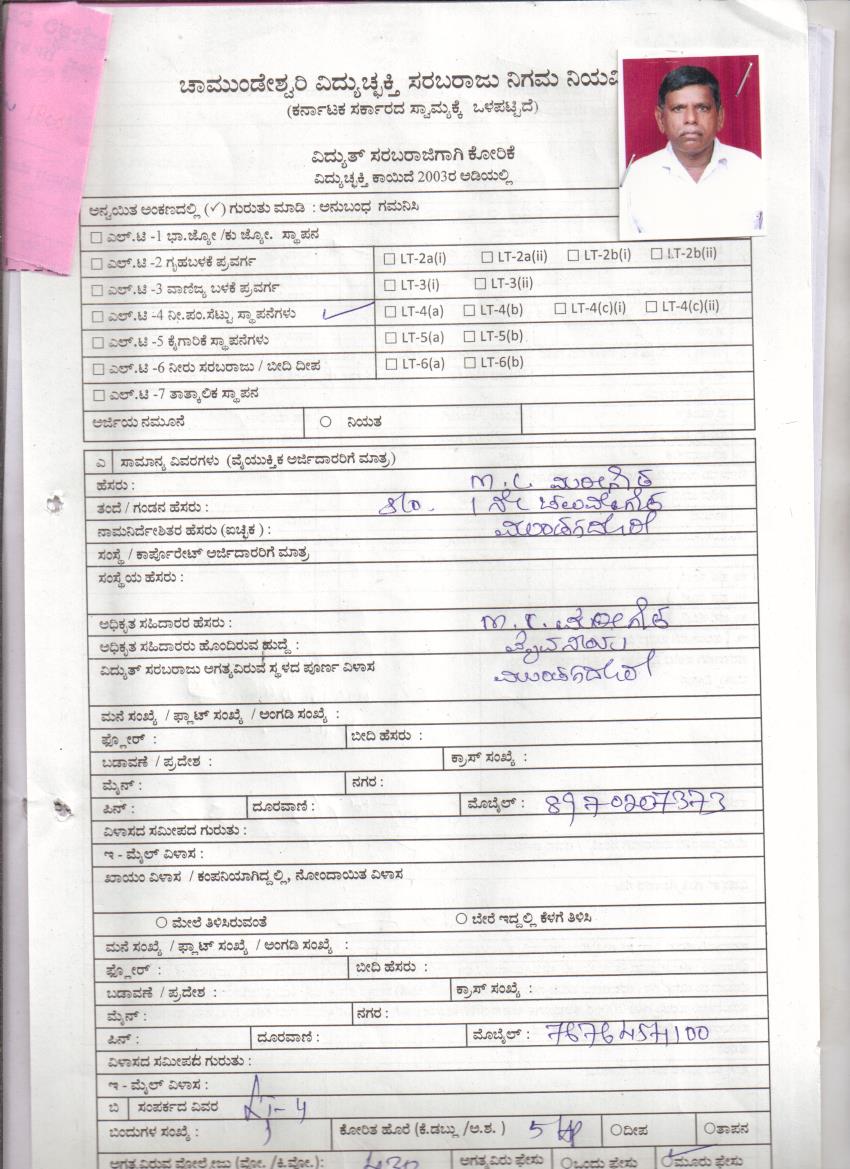 ಚಾಮುಂಡೇಶ್ವರಿ ವಿದ್ಯುಚ್ಛಕ್ತಿ ಸರಬರಾಜು ನಿಗಮ
(ಕರ್ನಾಟಕ ಸರ್ಕಾರದ ಸ್ವಾಮ್ಯಕ್ಕೆ ಒಳಪಟ್ಟಿದೆ)
ವಿದ್ಯುತ್ ಸರಬರಾಜಿಗಾಗಿ ಕೋರಿಕೆ
ವಿದ್ಯುಚ್ಛಕ್ತಿ ಕಾಯಿದೆ 2003ರ ಅಡಿಯಲ್ಲಿ
ಅನ್ವಯಿತ ಅಂಕಣದಲ್ಲಿ (✓) ಗುರುತು ಮಾಡಿ : ಅನುಬಂಧ ಗಮನಿಸಿ
☐ ಎಲ್.ಟಿ -1 ಭಾ.ಜ್ಯೋ /ಕು ಜ್ಯೋ. ಸ್ಥಾಪನ
☐ ಎಲ್.ಟಿ -2 ಗೃಹಬಳಕೆ ಪ್ರವರ್ಗ ☐ LT-2a(i) ☐ LT-2a(ii) ☐ LT-2b(i) ☐ LT-2b(ii)
☐ ಎಲ್.ಟಿ -3 ವಾಣಿಜ್ಯ ಬಳಕೆ ಪ್ರವರ್ಗ ☐ LT-3(i) ☐ LT-3(ii)
☐ ಎಲ್.ಟಿ -4 ನೀ.ಪಂ.ಸೆಟ್ಟು ಸ್ಥಾಪನೆಗಳು ✓ ☐ LT-4(a) ☐ LT-4(b) ☐ LT-4(c)(i) ☐ LT-4(c)(ii)
☐ ಎಲ್.ಟಿ -5 ಕೈಗಾರಿಕೆ ಸ್ಥಾಪನೆಗಳು ☐ LT-5(a) ☐ LT-5(b)
☐ ಎಲ್.ಟಿ -6 ನೀರು ಸರಬರಾಜು / ಬೀದಿ ದೀಪ ☐ LT-6(a) ☐ LT-6(b)
☐ ಎಲ್.ಟಿ -7 ತಾತ್ಕಾಲಿಕ ಸ್ಥಾಪನ
ಅರ್ಜಿಯ ನಮೂನೆ ○ ನಿಯತ
ಎ ಸಾಮಾನ್ಯ ವಿವರಗಳು (ವೈಯುಕ್ತಿಕ ಅರ್ಜಿದಾರರಿಗೆ ಮಾತ್ರ)
ಹೆಸರು :
ತಂದೆ / ಗಂಡನ ಹೆಸರು : S/o. 1 ನೇ
ನಾಮನಿರ್ದೇಶಿತರ ಹೆಸರು (ಐಚ್ಛಿಕ ) :
ಸಂಸ್ಥೆ / ಕಾರ್ಪೊರೇಟ್ ಅರ್ಜಿದಾರರಿಗೆ ಮಾತ್ರ
ಸಂಸ್ಥೆಯ ಹೆಸರು :
ಅಧಿಕೃತ ಸಹಿದಾರರ ಹೆಸರು :
ಅಧಿಕೃತ ಸಹಿದಾರರು ಹೊಂದಿರುವ ಹುದ್ದೆ :
ವಿದ್ಯುತ್ ಸರಬರಾಜು ಅಗತ್ಯವಿರುವ ಸ್ಥಳದ ಪೂರ್ಣ ವಿಳಾಸ
ಮನೆ ಸಂಖ್ಯೆ / ಫ್ಲಾಟ್ ಸಂಖ್ಯೆ / ಅಂಗಡಿ ಸಂಖ್ಯೆ :
ಫ್ಲೋರ್ : ಬೀದಿ ಹೆಸರು :
ಬಡಾವಣೆ / ಪ್ರದೇಶ : ಕ್ರಾಸ್ ಸಂಖ್ಯೆ :
ಮೈನ್ : ನಗರ :
ಪಿನ್ : ದೂರವಾಣಿ : ಮೊಬೈಲ್ : 8970207373
ವಿಳಾಸದ ಸಮೀಪದ ಗುರುತು :
ಇ - ಮೈಲ್ ವಿಳಾಸ :
ಖಾಯಂ ವಿಳಾಸ / ಕಂಪನಿಯಾಗಿದ್ದಲ್ಲಿ, ನೋಂದಾಯಿತ ವಿಳಾಸ
○ ಮೇಲೆ ತಿಳಿಸಿರುವಂತೆ ○ ಬೇರೆ ಇದ್ದಲ್ಲಿ ಕೆಳಗೆ ತಿಳಿಸಿ
ಮನೆ ಸಂಖ್ಯೆ / ಫ್ಲಾಟ್ ಸಂಖ್ಯೆ / ಅಂಗಡಿ ಸಂಖ್ಯೆ :
ಫ್ಲೋರ್ : ಬೀದಿ ಹೆಸರು :
ಬಡಾವಣೆ / ಪ್ರದೇಶ : ಕ್ರಾಸ್ ಸಂಖ್ಯೆ :
ಮೈನ್ : ನಗರ :
ಪಿನ್ : ದೂರವಾಣಿ : ಮೊಬೈಲ್ :
ವಿಳಾಸದ ಸಮೀಪದ ಗುರುತು :
ಇ - ಮೈಲ್ ವಿಳಾಸ :
ಬಿ ಸಂಪರ್ಕದ ವಿವರ LT-4
ಬಿಂದುಗಳ ಸಂಖ್ಯೆ : 1 ಕೋರಿತ ಹೊರೆ (ಕೆ.ಡಬ್ಲು /ಅ.ಶ. ) 5 HP ○ದೀಪ ○ತಾಪನ
ಅಗತ್ಯವಿರು ಫೇಸು ○ಒಂದು ಫೇಸು ○ಮೂರು ಫೇಸು